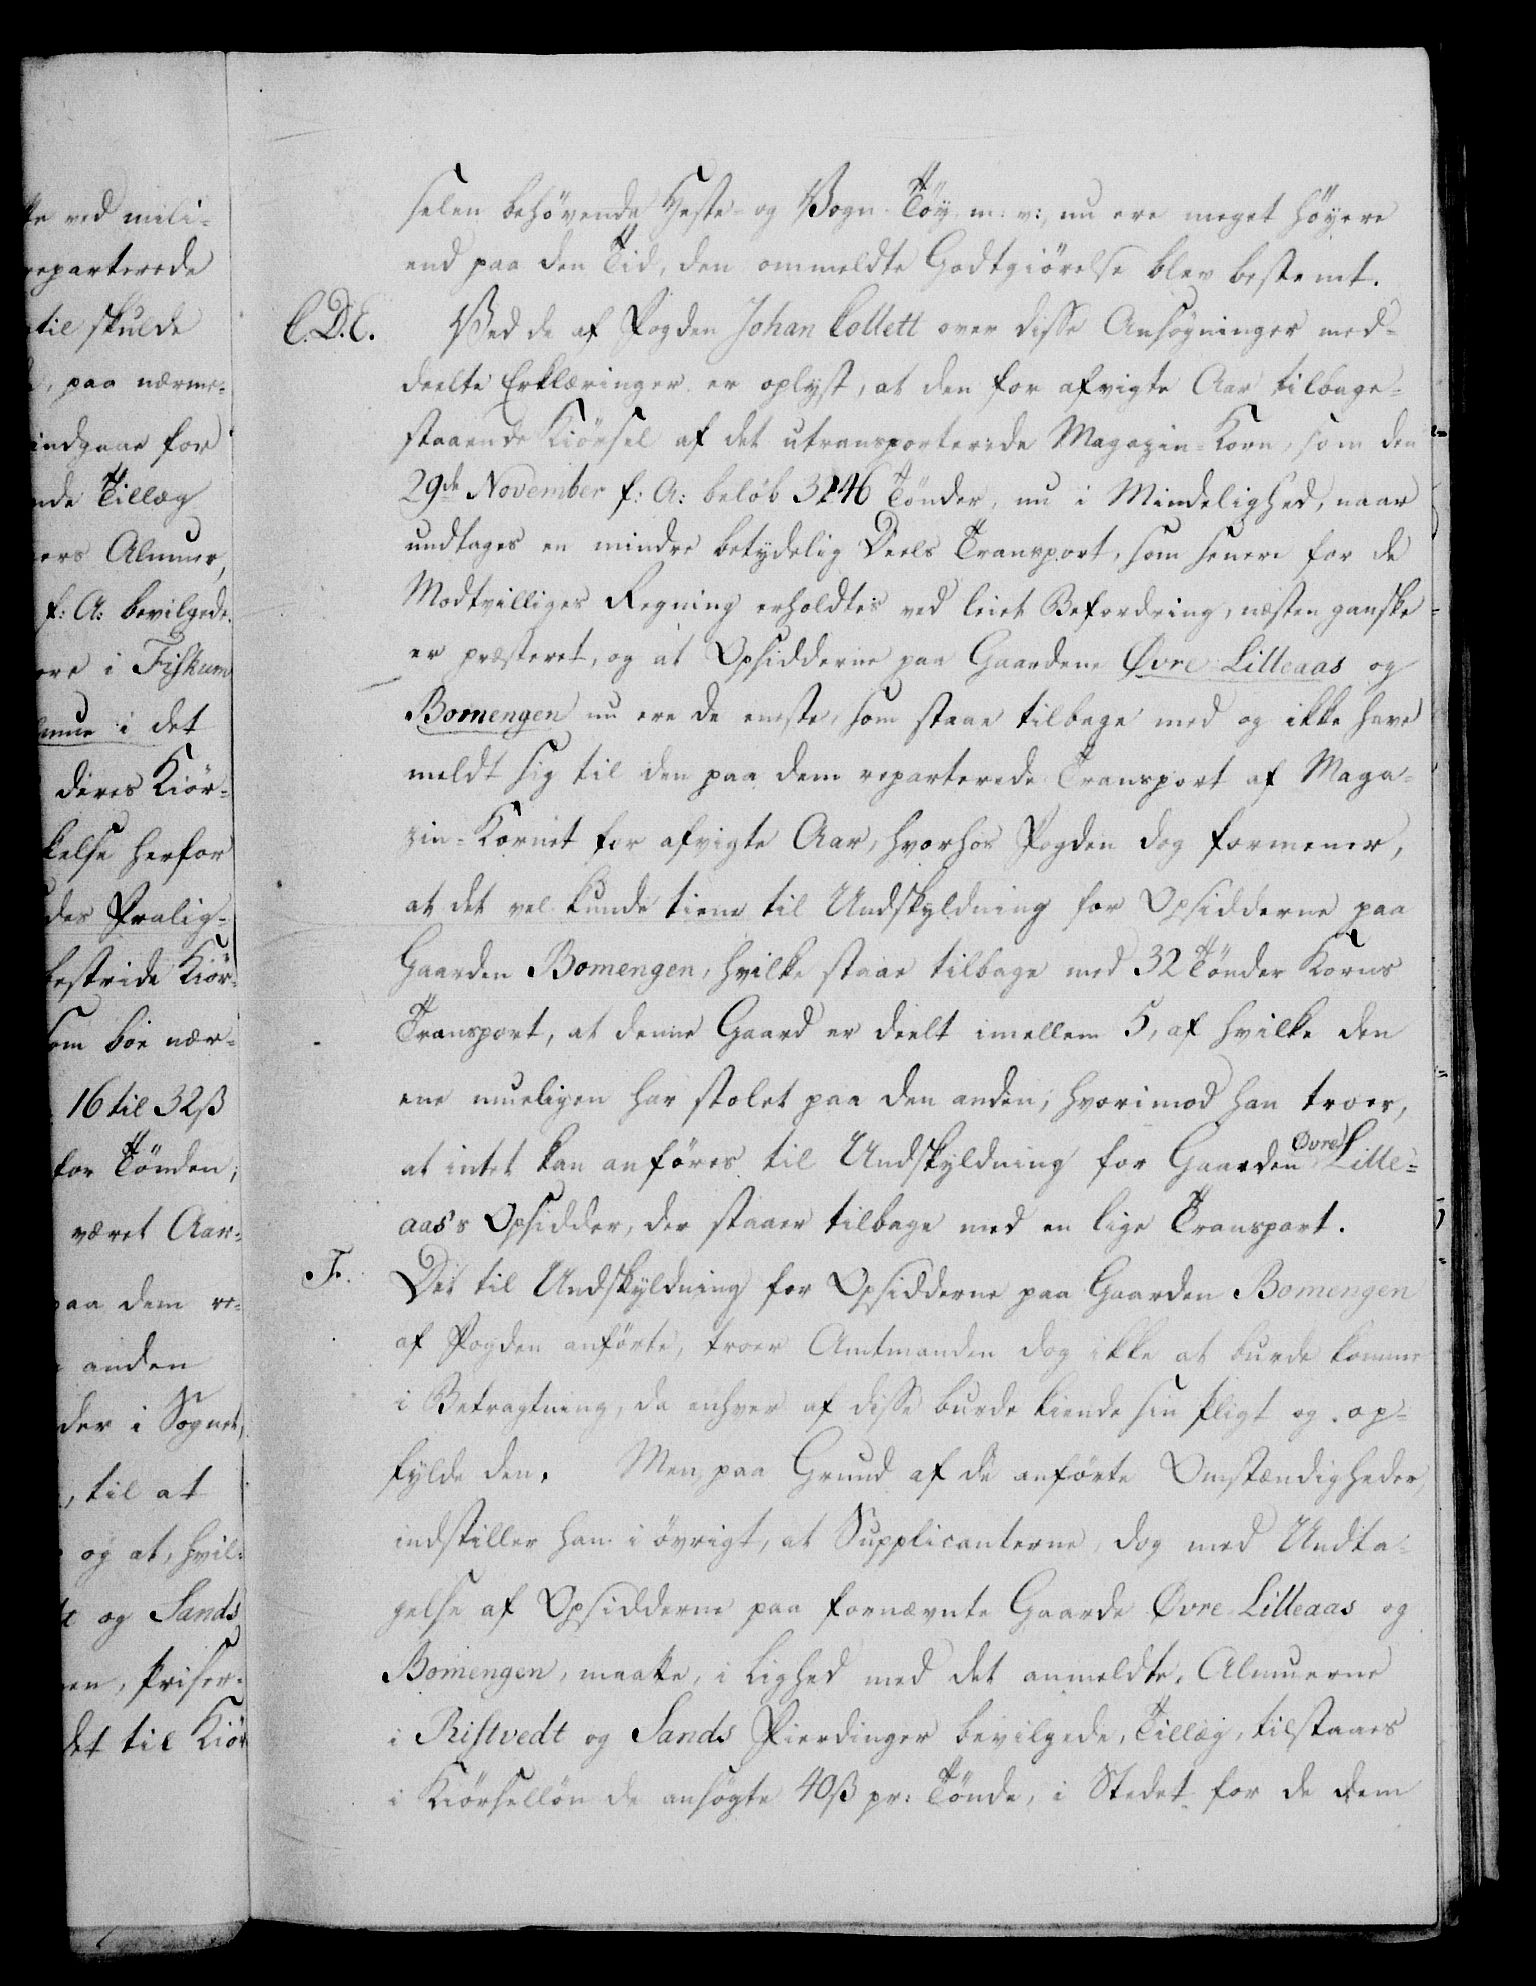 ke ved mili-
reparterede
til skulde
, paa nærme-
indgaar for
nde Tillæg
ers Almue,
f: A: bevilgede
ere i Fiskum
lmue i det
deres Kiör-
kelse herfor
des Pralig-
bestride Kiör-
som böe nær-
16 til 32 ß
for Tönden,
været Aar-
paa dem re-
anden
der i Sognet,
, til at
og at, hvil-
og Sands
en, Priser-
det til Kiör
selen behövende Heste- og Vogn-Töy m: v:, nu ere meget höyere
end paa den Tid, den ommeldte Godtgiörelse blev bestemt.
C. D. E. Ved de af Fogden Johan Collett over disse Ansögninger med-
deelte Erklæringer er oplyst, at den for afvigte Aar tilbage-
staaende Kiörsel af det utransporterede Magazin-Korn, som den
29de November f: A: belöb 3146 Tönder, nu i Mindelighed, naar
undtages en mindre betydelig Deels Transport, som senere for de
Modvilliges Regning erholdtes ved leiet Befordring, næsten ganske
er præsteret, og at Opsidderne paa Gaardene Øvre Lilleaas og
Bomengen nu ere de eneste, som staae tilbage med og ikke have
meldt sig til den paa dem reparterede Transport af Maga-
zin-Kornet for afvigte Aar, hvorhos Fogden dog formener,
at det vel kunde tiene til Undskyldning for Opsidderne paa
Gaarden Bomengen, hvilke staae tilbage med 32 Tönder Korns
Transport, at denne Gaard er deelt imellem 5, af hvilke den
ene mueligen har stolet paa den anden; hvorimod han troer,
at intet kan anföres til Undskyldning for Gaarden Øvre Lille-
aas's Opsidder, der staaer tilbage med en lige Transport.
F. Det til Undskyldning for Opsidderne paa Gaarden Bomengen
af Fogden anförte, troer Amtmanden dog ikke at burde komme
i Betragtning, da enhver af disse burde kiende sin Pligt og op-
fylde den. Men, paa Grund af de anförte Omstændigheder,
indstiller han i övrigt, at Supplicanterne, dog med Undta-
gelse af Opsidderne paa fornævnte Gaarde Øvre Lilleaas og
Bomengen, maatte, i Lighed med det anmeldte, Almuerne
i Ristvedt og Sands Fierdinger bevilgede, Tillæg, tilstaaes
i Kiörsellön de ansögte 40 ß pr: Tönde, i Stedet for de dem